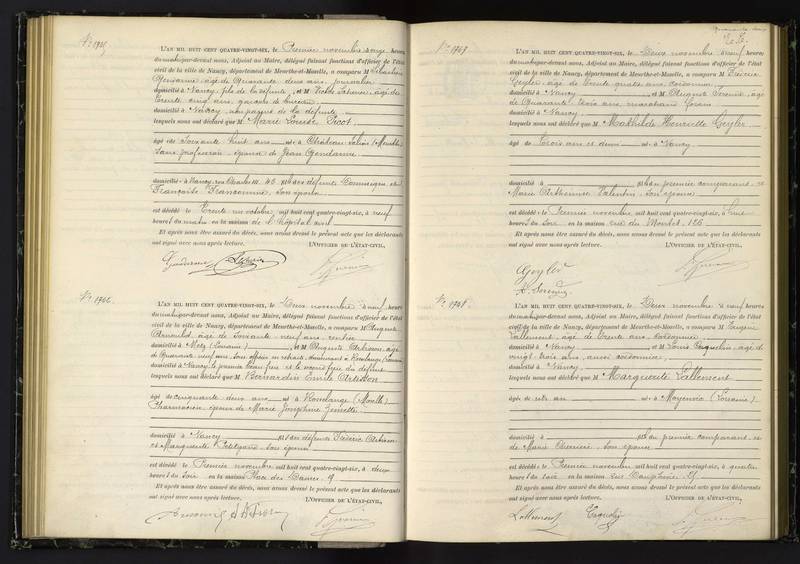 N° 1945
L'AN MIL HUIT CENT QUATRE-VINGT-SIX, le Premier novembre onze heures
du matin par-devant nous, Adjoint au Maire, délégué faisant fonctions d'officier de l'état
civil de la ville de Nancy, département de Meurthe-et-Moselle, a comparu M Sébastien
Gendarme, âgé de Quarante deux ans, journalier
domicilié à Nancy, fils de la défunte et M Victor âgé de
trente cinq ans, garçon de bureau
domicilié à Nancy, non parent de la défunte
lesquels nous ont déclaré que M Marie Louise Picot
âgé de Soixante huit ans né à Château Salins (Meurthe)
sans profession, épouse de Jean Gendarme
domicilié à Nancy, rue Charles III, 45 fils des défunts Dominique et
Françoise Françonme, son épouse
est décédé le Trente un octobre mil huit cent quatre-vingt-six, à neuf
heures du matin en la maison de l'hôpital civil
Et après nous être assuré du décès, nous avons dressé le présent acte que les déclarants
ont signé avec nous après lecture. L'OFFICIER DE L'ÉTAT-CIVIL,
Gendarme
N° 1946
L'AN MIL HUIT CENT QUATRE-VINGT-SIX, le Deux novembre à neuf heures
du matin par-devant nous, Adjoint au Maire, délégué faisant fonctions d'officier de l'état
civil de la ville de Nancy, département de Meurthe-et-Moselle, a comparu M Auguste
Arnould, âgé de soixante neuf ans, rentier
domicilié à Metz (Lorraine) et M Auguste Artisson, âgé
de Quarante neuf ans, sous officier en retraite, demeurant à Rombas
domicilié à Nancy, le premier beau frère et le second frère du défunt
lesquels nous ont déclaré que M Bernardin Emile Artisson
âgé de cinquante deux ans né à Rosselange (Moselle)
Pharmacien, époux de Marie Joséphine
domicilié à Nancy fils des défunts Frédéric Artisson
et Marguerite Petitgand, son épouse
est décédé le Premier novembre mil huit cent quatre-vingt-six, à deux
heures du soir en la maison Place des Dames, 9
Et après nous être assuré du décès, nous avons dressé le présent acte que les déclarants
ont signé avec nous après lecture. L'OFFICIER DE L'ÉTAT-CIVIL,
N° 1947
L'AN MIL HUIT CENT QUATRE-VINGT-SIX, le Deux novembre à neuf heures
du matin par-devant nous, Adjoint au Maire, délégué faisant fonctions d'officier de l'état
civil de la ville de Nancy, département de Meurthe-et-Moselle, a comparu M Frédéric
Geyler, âgé de Trente quatre ans, cordonnier
domicilié à Nancy et M Auguste âgé
de Quarante trois ans, marchand
domicilié à Nancy
lesquels nous ont déclaré que M Mathilde Henriette Geyler
âgé de Trois ans et demi né à Nancy
domicilié à fils du premier comparant et
Marie Valentin, son épouse
est décédé le Premier novembre mil huit cent quatre-vingt-six, à huit
heures du soir en la maison rue du Montet, 126
Et après nous être assuré du décès, nous avons dressé le présent acte que les déclarants
ont signé avec nous après lecture. L'OFFICIER DE L'ÉTAT-CIVIL,
Geyler
N° 1948
L'AN MIL HUIT CENT QUATRE-VINGT-SIX, le Deux novembre à neuf heures
du matin par-devant nous, Adjoint au Maire, délégué faisant fonctions d'officier de l'état
civil de la ville de Nancy, département de Meurthe-et-Moselle, a comparu M Eugène
Lallement, âgé de Trente ans, cordonnier
domicilié à Nancy et M Louis âgé de
vingt trois ans, aussi cordonnier
domicilié à Nancy
lesquels nous ont déclaré que M Marguerite Lallement
âgé de un an né à Moyenvic (Lorraine)
domicilié à fils du premier comparant et
de Marie son épouse
est décédé le Premier novembre mil huit cent quatre-vingt-six, à quatre
heures du soir en la maison rue
Et après nous être assuré du décès, nous avons dressé le présent acte que les déclarants
ont signé avec nous après lecture. L'OFFICIER DE L'ÉTAT-CIVIL,
Lallement